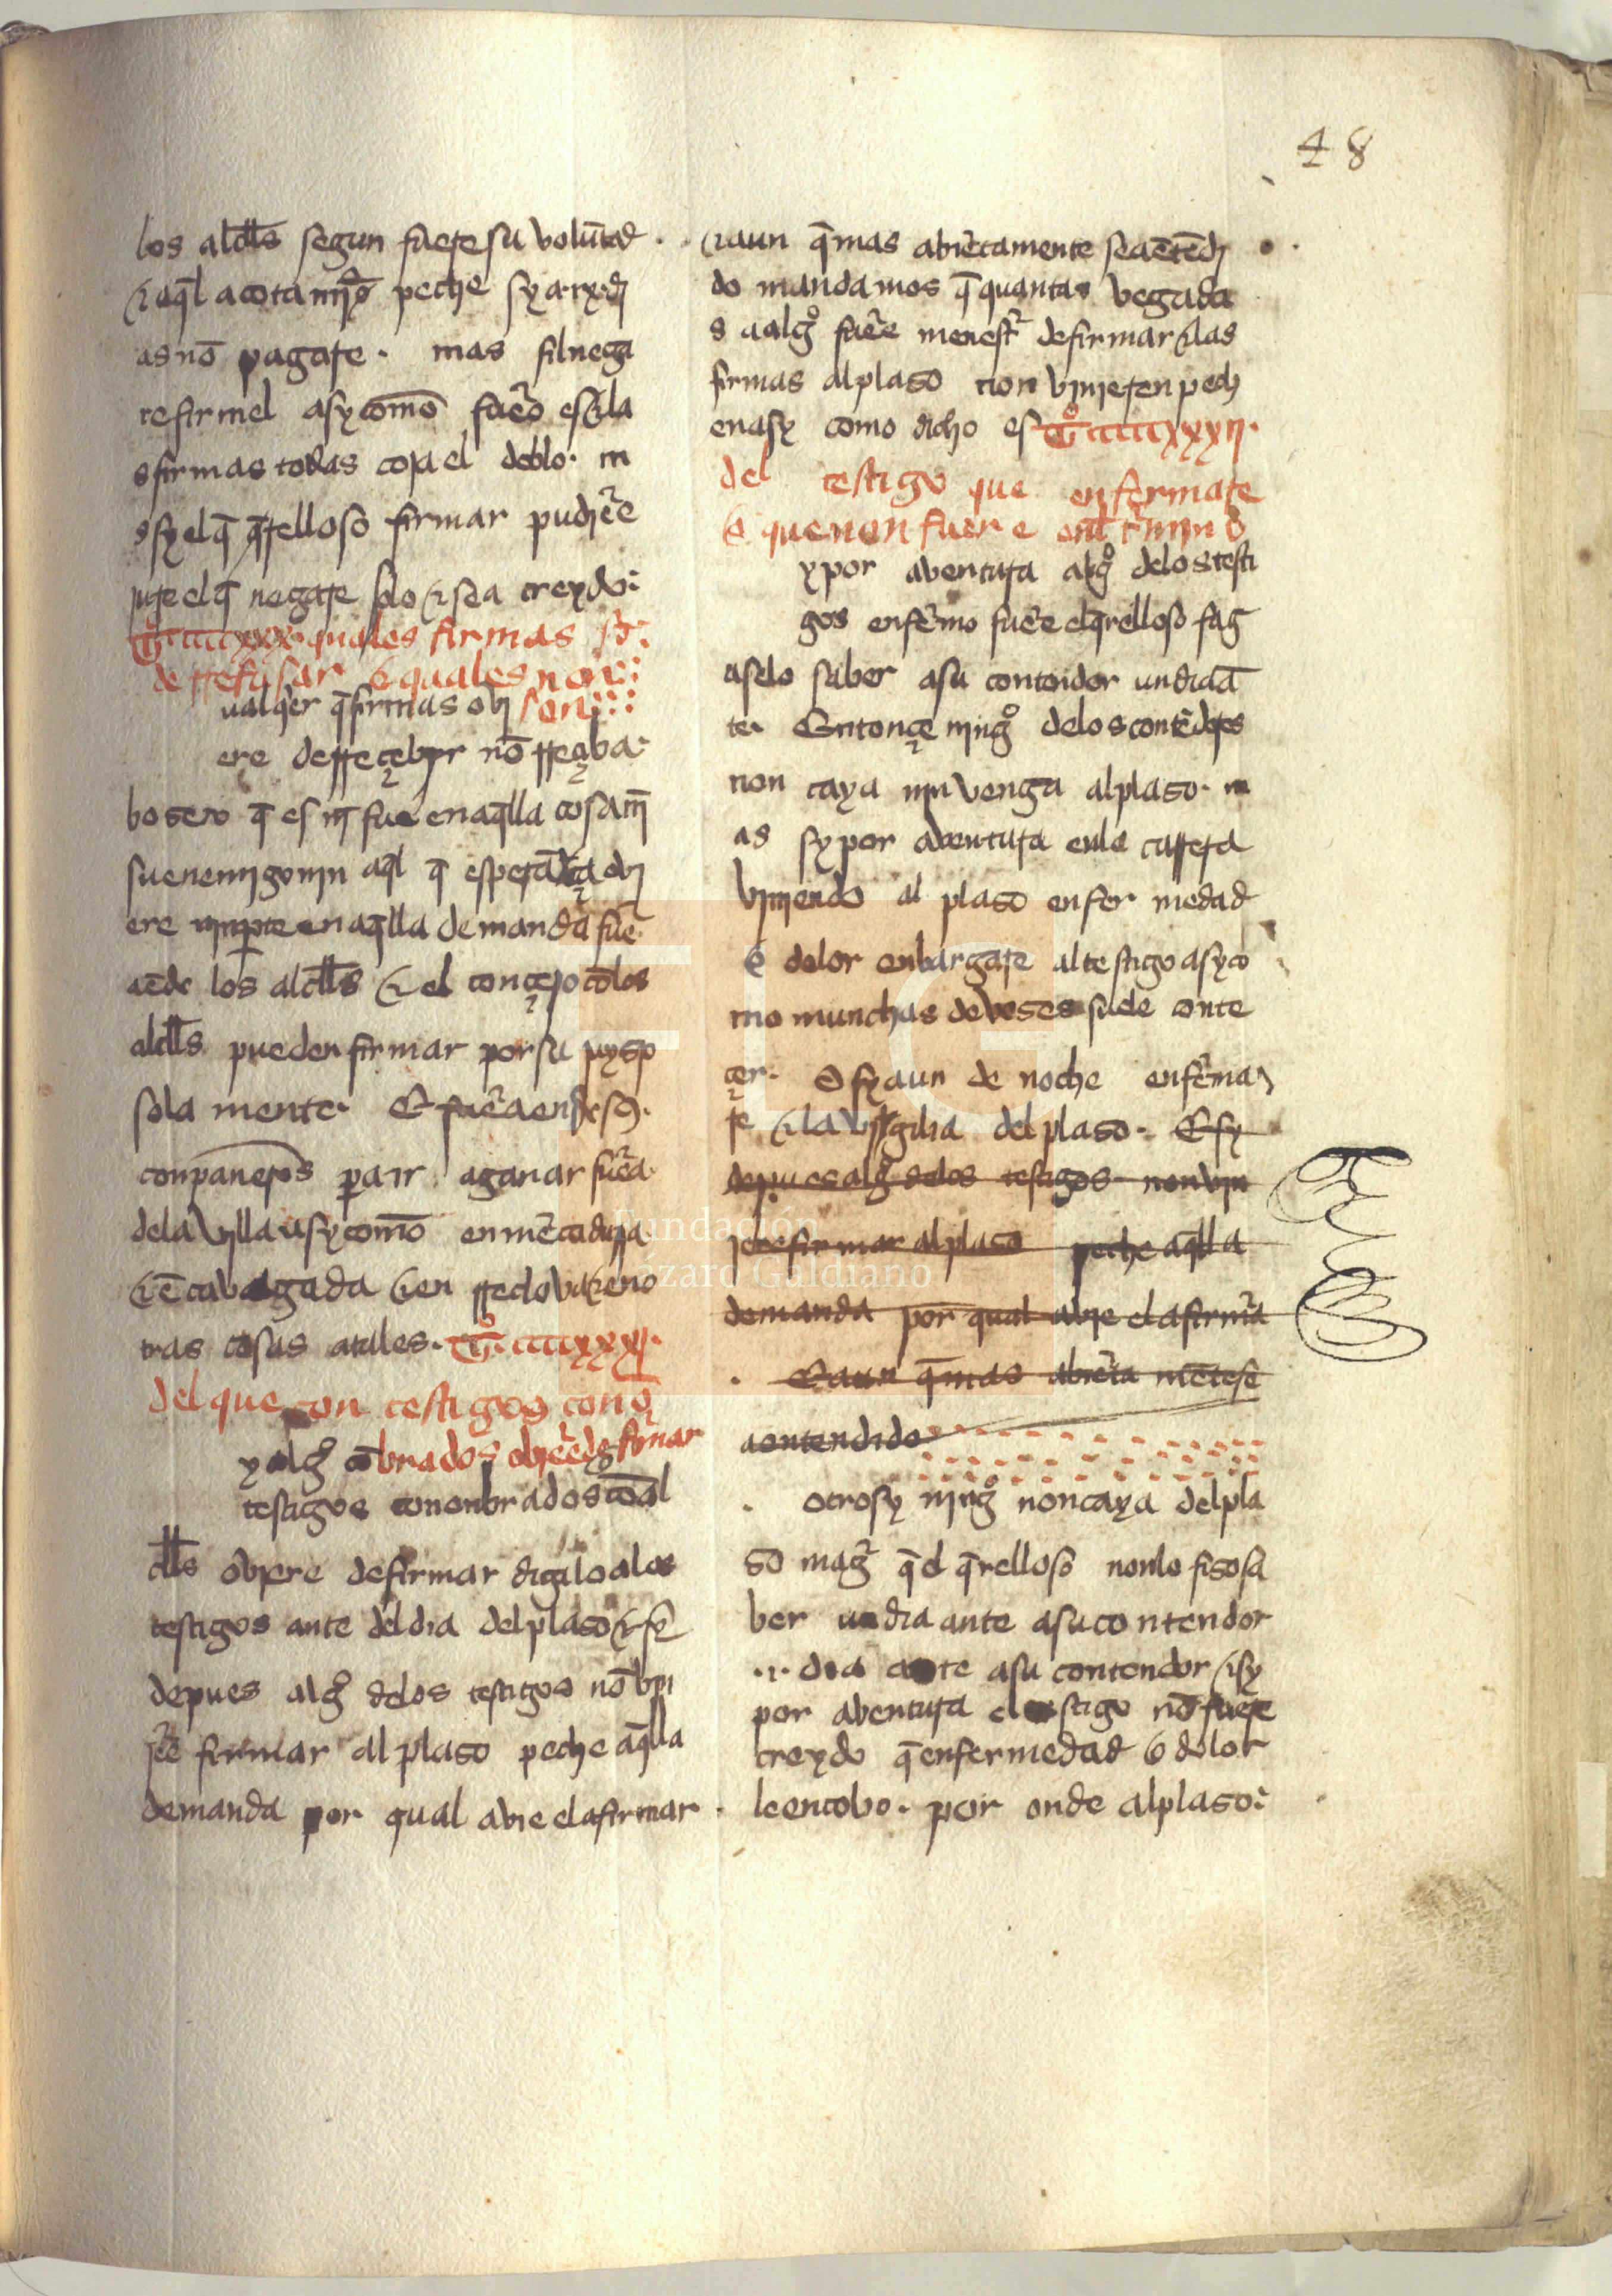 48
los alcłłs segun fuere su volūtad
⁊ aq̄l acotamj̄o peche sy a .ix. dj
as nō pagare . mas sil nega
re firmel asy comō fuero es ⁊ la
s firmas todas coja el deblo . m
s sy el q̄ q̄relloso firmar pudiēe
jure el q̄ negare solo ⁊ sea creydo
Tº ccccxxx quales firmas sō
de rrefusar o quales non
ualq̄er q̄ firmas obj son
ere de rreçebyr nō rreçba
bosero q̄ es nj̄ fue en aq̄lla cosa nj̄
su enemigo njn aq̄l q̄ esperāça obj
ere njn ꝑte en aq̄lla demanda fuē
aēde los alcłłs ⁊ el conçejo cō los
alcłłs pueden firmar por su juyso
sola mente . E fuēa ende sō
conpaneros ꝑa ir a ganar fuēa
dela villa asy comō en mēcaduria
⁊ ē cavalgada ⁊ en
tras cosas atales . Tº ccccxxxj
del que con testigos conō
y alḡ cōbrados objēe de firmar
testigos cononbrados cō al
cłłs obiere de firmar digalo a los
testigos ante del dia del plaso ⁊ sy
depues alḡ delos testigos nō vjni
jēe firmar al plaso peche aq̄lla
demanda por qual avie el a firmar
⁊ aun q̄ mas abiertamente sea ētēdj
do mandamos q̄ quantas vegada
s a alḡº fuēe menest̄ de firmar ⁊ las
firmas al plaso non vinieren pech
en asy como dicho es Tº cccccxxxij
del testigo que enfermare
o que non fuere enl t̄mjno
y por aventura alḡº delos testi
gos enfēmo fuēe el q̄relloso fag
aselo saber a su contendor un dia ā
te . Entonçe njngº delos contēdores
non caya njn venga al plaso . m
as sy por aventura enla carrera
vjnjendo al plaso enfermedad
o dolor enbargare al testigo asy co
mo munchas de veses suele conte
çer . O sy aun de noche enfēma
re ⁊ la vigilia del plaso . E sy
depues alḡ delos testigos non vjn
iere firmar al plaso peche aq̄lla
demanda por qual avie el a firmā
E aun q̄ mas abiēta mēte se
a entendido
otrosy njngº non caya del pla
so maḡ q̄ el q̄relloso non lo fiso sa
ber un dia ante a su contendor
.i. dia ante a su contendor ⁊ sy
por aventura el testigo nō fuere
creydo q̄ enfermedad o dolor
le entobo . por onde al plaso
Fundación
Lázaro Galdiano